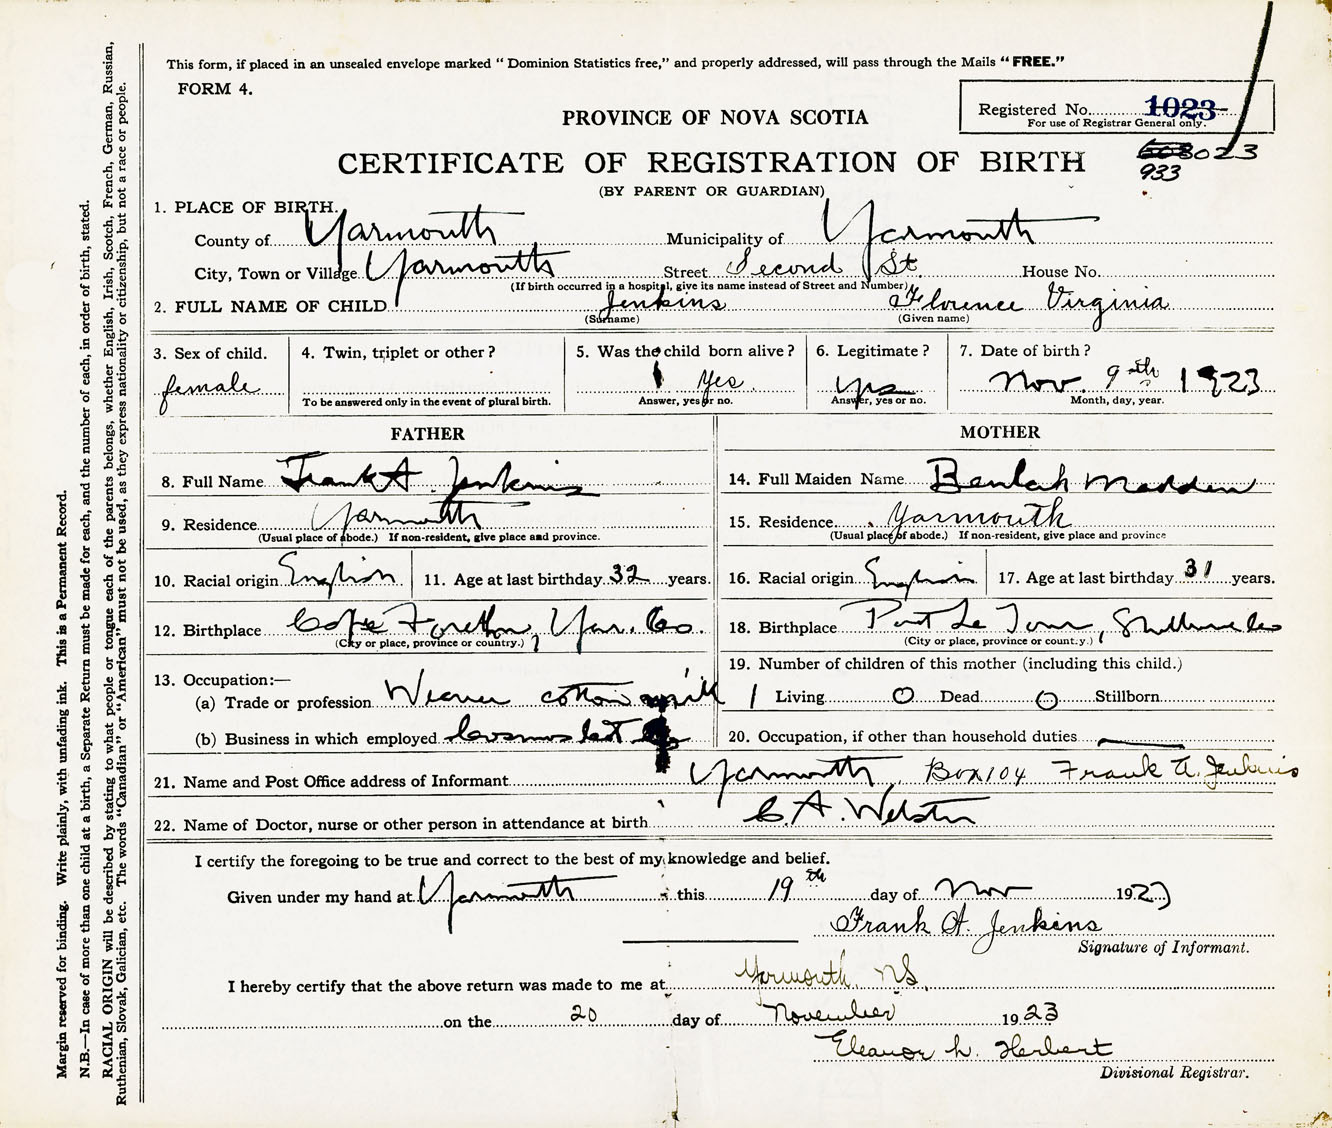 This form, if placed in an unsealed envelope marked “Dominion Statistics free,” and properly addressed, will pass through the Mails “FREE.”
FORM 4.
Registered No. 1023
For use of Registrar General only.
PROVINCE OF NOVA SCOTIA
3023
933
CERTIFICATE OF REGISTRATION OF BIRTH
(BY PARENT OR GUARDIAN)
1. PLACE OF BIRTH.
County of Yarmouth Municipality of Yarmouth
City, Town or Village Yarmouth Street Second St. House No.
(If birth occurred in a hospital, give its name instead of Street and Number)
2. FULL NAME OF CHILD Jenkins Florence Virginia
(Surname) (Given name)
3. Sex of child. 4. Twin, triplet or other? 5. Was the child born alive? 6. Legitimate? 7. Date of birth?
female Yes yes Nov. 9th 1923
To be answered only in the event of plural birth. Answer, yes or no. Answer, yes or no. Month, day, year.
FATHER MOTHER
8. Full Name Frank A. Jenkins 14. Full Maiden Name Beulah Madden
9. Residence Yarmouth 15. Residence Yarmouth
(Usual place of abode.) If non-resident, give place and province. (Usual place of abode.) If non-resident, give place and province
10. Racial origin English 11. Age at last birthday 32 years. 16. Racial origin English 17. Age at last birthday 31 years.
12. Birthplace Cape Forchu, Yar. Co. 18. Birthplace Port La Tour, Shelburne Co
(City or place, province or country.) (City or place, province or country.)
13. Occupation:— 19. Number of children of this mother (including this child.)
(a) Trade or profession Weaver cotton mill 1 Living 0 Dead 0 Stillborn
(b) Business in which employed Cosmos 20. Occupation, if other than household duties —
21. Name and Post Office address of Informant Yarmouth, Box 104 Frank A. Jenkins
22. Name of Doctor, nurse or other person in attendance at birth C. A. Webster
I certify the foregoing to be true and correct to the best of my knowledge and belief.
Given under my hand at Yarmouth this 19th day of Nov 1923
Frank A. Jenkins
Signature of Informant.
I hereby certify that the above return was made to me at Yarmouth, N.S.
on the 20 day of November 1923
Eleanor L. Herbert
Divisional Registrar.
Margin reserved for binding. Write plainly, with unfading ink. This is a Permanent Record.
N.B.—In case of more than one child at a birth, a Separate Return must be made for each, and the number of each, in order of birth, stated.
RACIAL ORIGIN will be described by stating to what people or tongue each of the parents belongs, whether English, Irish, Scotch, French, German, Russian,
Ruthenian, Slovak, Galician, etc. The words “Canadian” or “American” must not be used, as they express nationality or citizenship, but not a race or people.